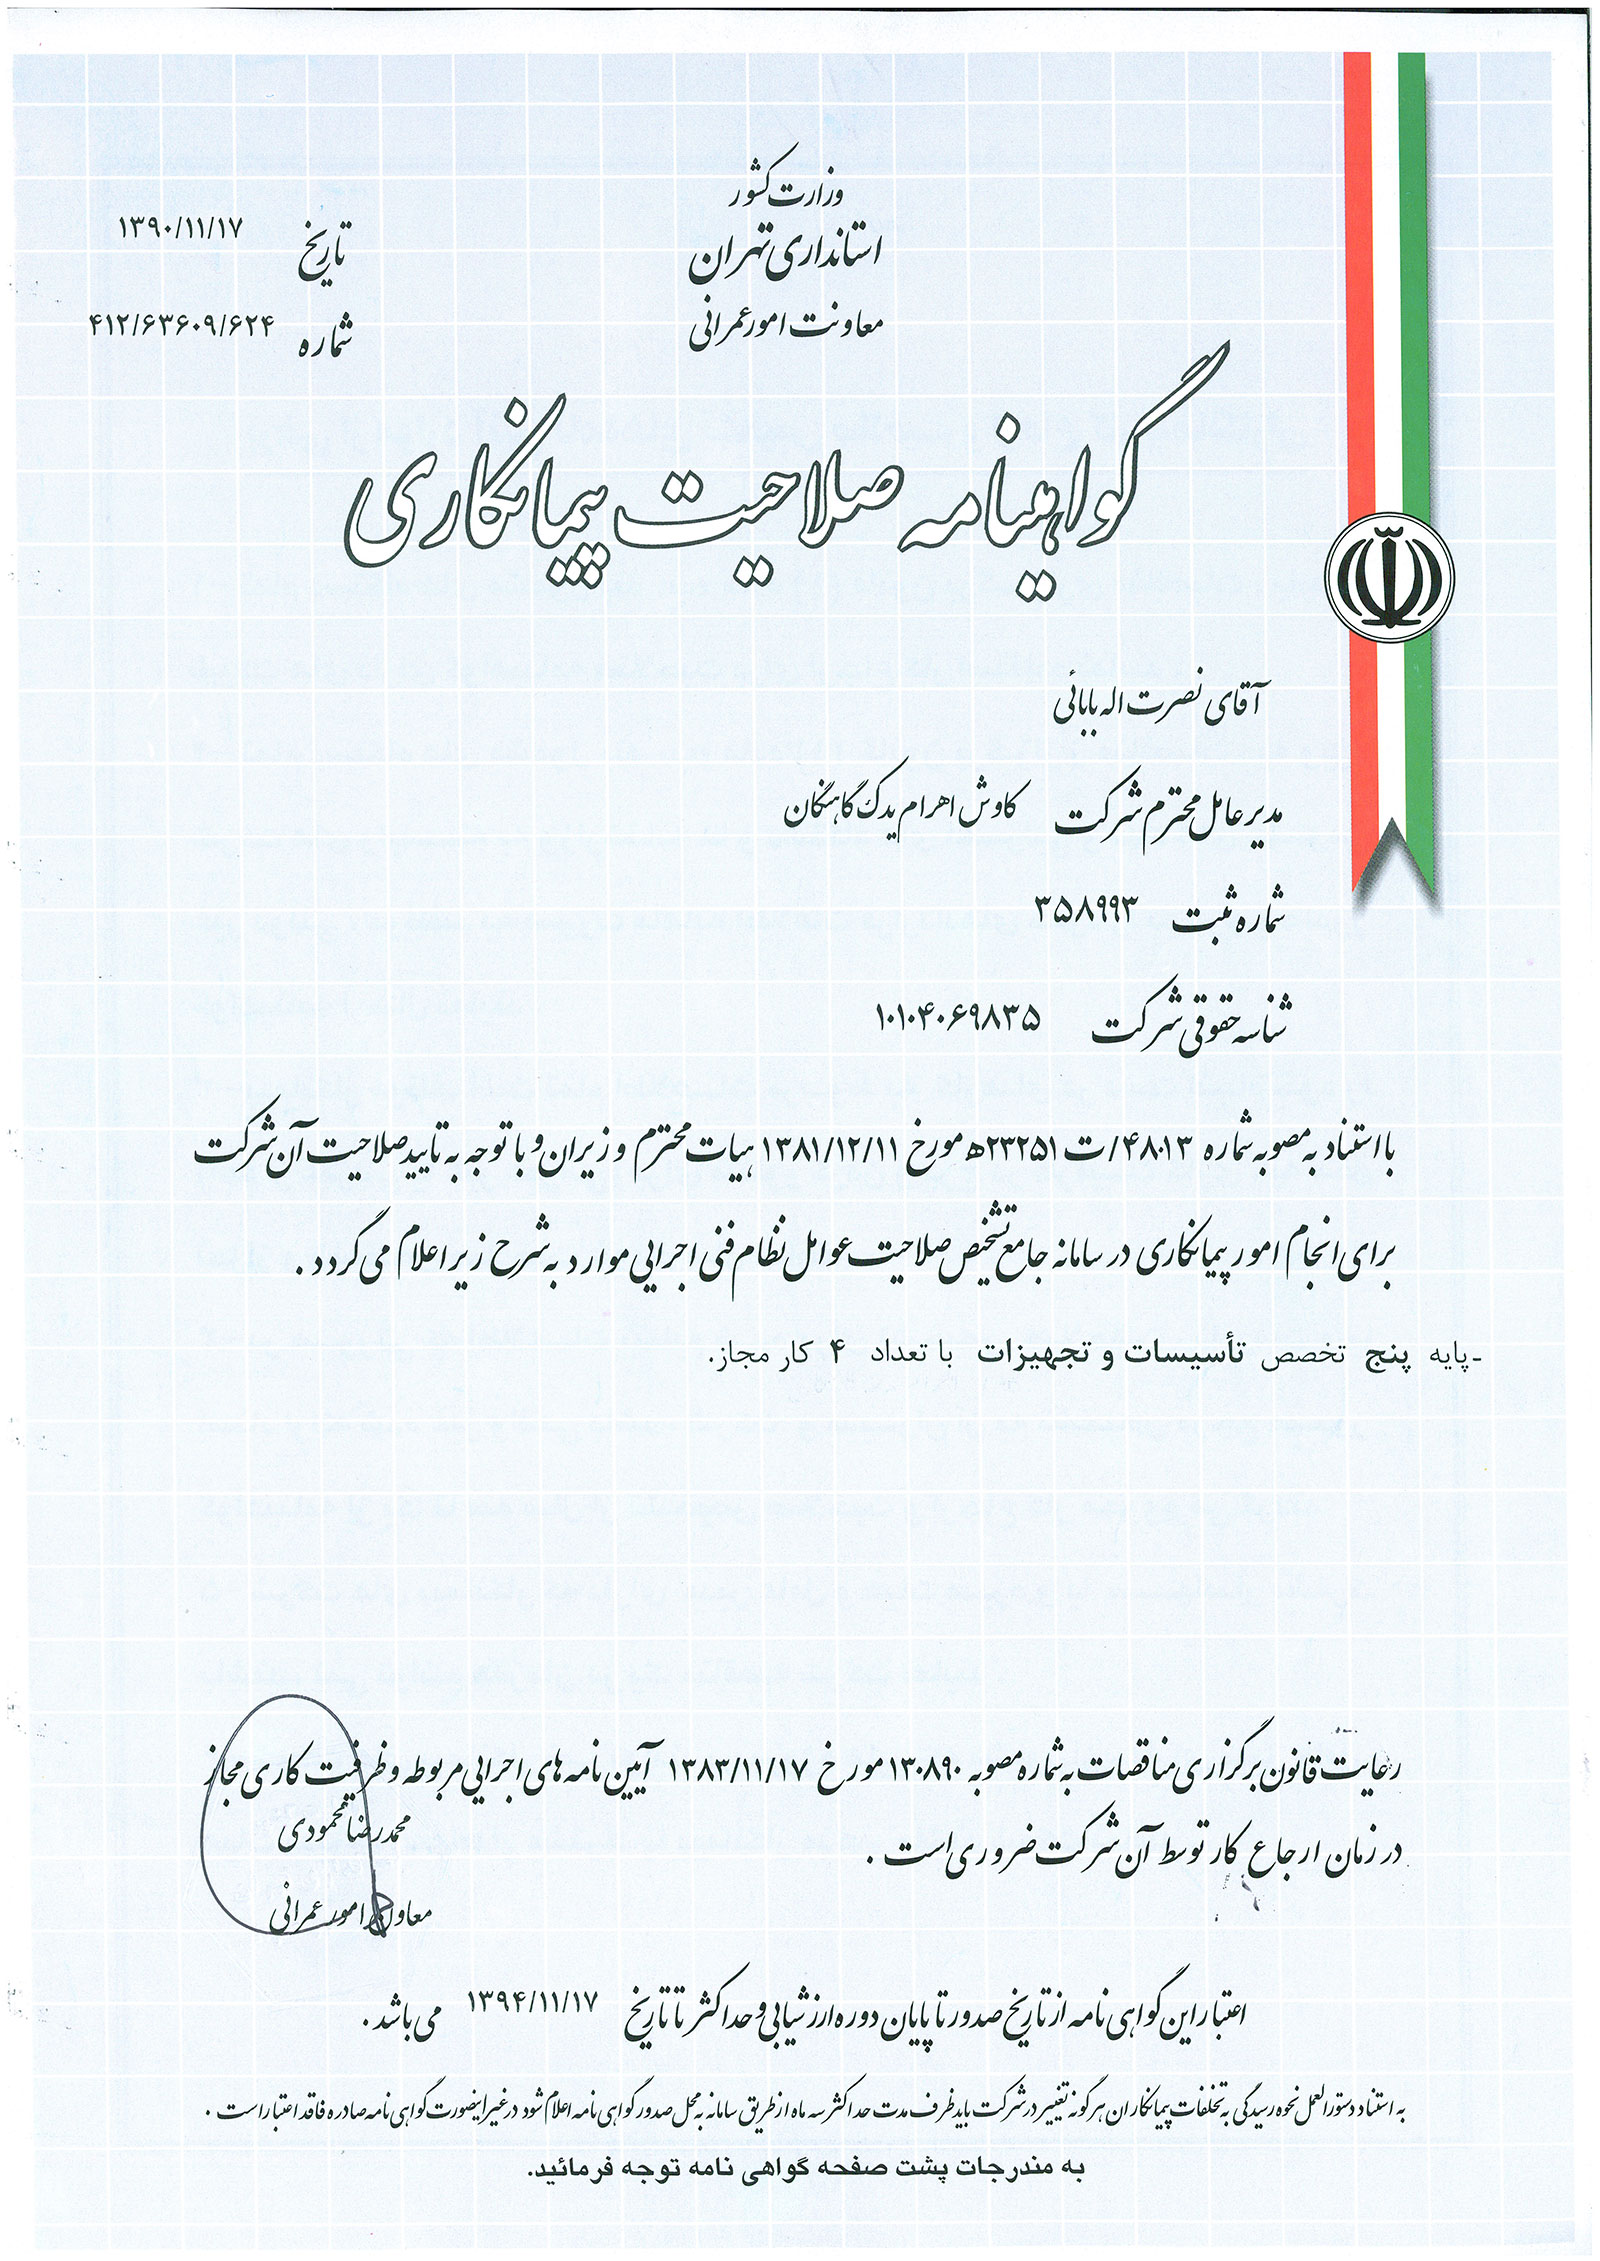 وزارت کشور
استانداری تهران
معاونت امور عمرانی
تاریخ ۱۳۹۰/۱۱/۱۷
شماره ۴۱۲/۶۳۶۰۹/۶۲۴
گواهینامه صلاحیت پیمانکاری
آقای نصرت اله بابائی
مدیر عامل محترم شرکت کاوش اهرام یدک گاهنگان
شماره ثبت ۳۵۸۹۹۳
شناسه حقوقی شرکت ۱۰۱۰۴۰۶۹۸۳۵
با استناد به مصوبه شماره ۴۸۰۱۳/ت ۲۳۲۵۱ه مورخ ۱۳۸۱/۱۲/۱۱ هیات محترم وزیران و با توجه به تایید صلاحیت آن شرکت
برای انجام امور پیمانکاری در سامانه جامع تشخیص صلاحیت عوامل نظام فنی اجرایی موارد به شرح زیر اعلام می گردد .
-پایه پنج تخصص تأسیسات و تجهیزات با تعداد ۴ کار مجاز.
رعایت قانون برگزاری مناقصات به شماره مصوبه ۱۳۰۸۹۰ مورخ ۱۳۸۳/۱۱/۱۷ آیین نامه های اجرایی مربوطه و ظرفیت کاری مجاز
در زمان ارجاع کار توسط آن شرکت ضروری است .
محمدرضا محمودی
معاون امور عمرانی
اعتبار این گواهی نامه از تاریخ صدور تا پایان دوره ارزشیابی و حداکثر تا تاریخ ۱۳۹۴/۱۱/۱۷ می باشد .
به استناد دستورالعمل نحوه رسیدگی به تخلفات پیمانکاران هرگونه تغییر در شرکت باید ظرف مدت حداکثر سه ماه از طریق سامانه به محل صدور گواهی نامه اعلام شود در غیر اینصورت گواهی نامه صادره فاقد اعتبار است .
به مندرجات پشت صفحه گواهی نامه توجه فرمائید.